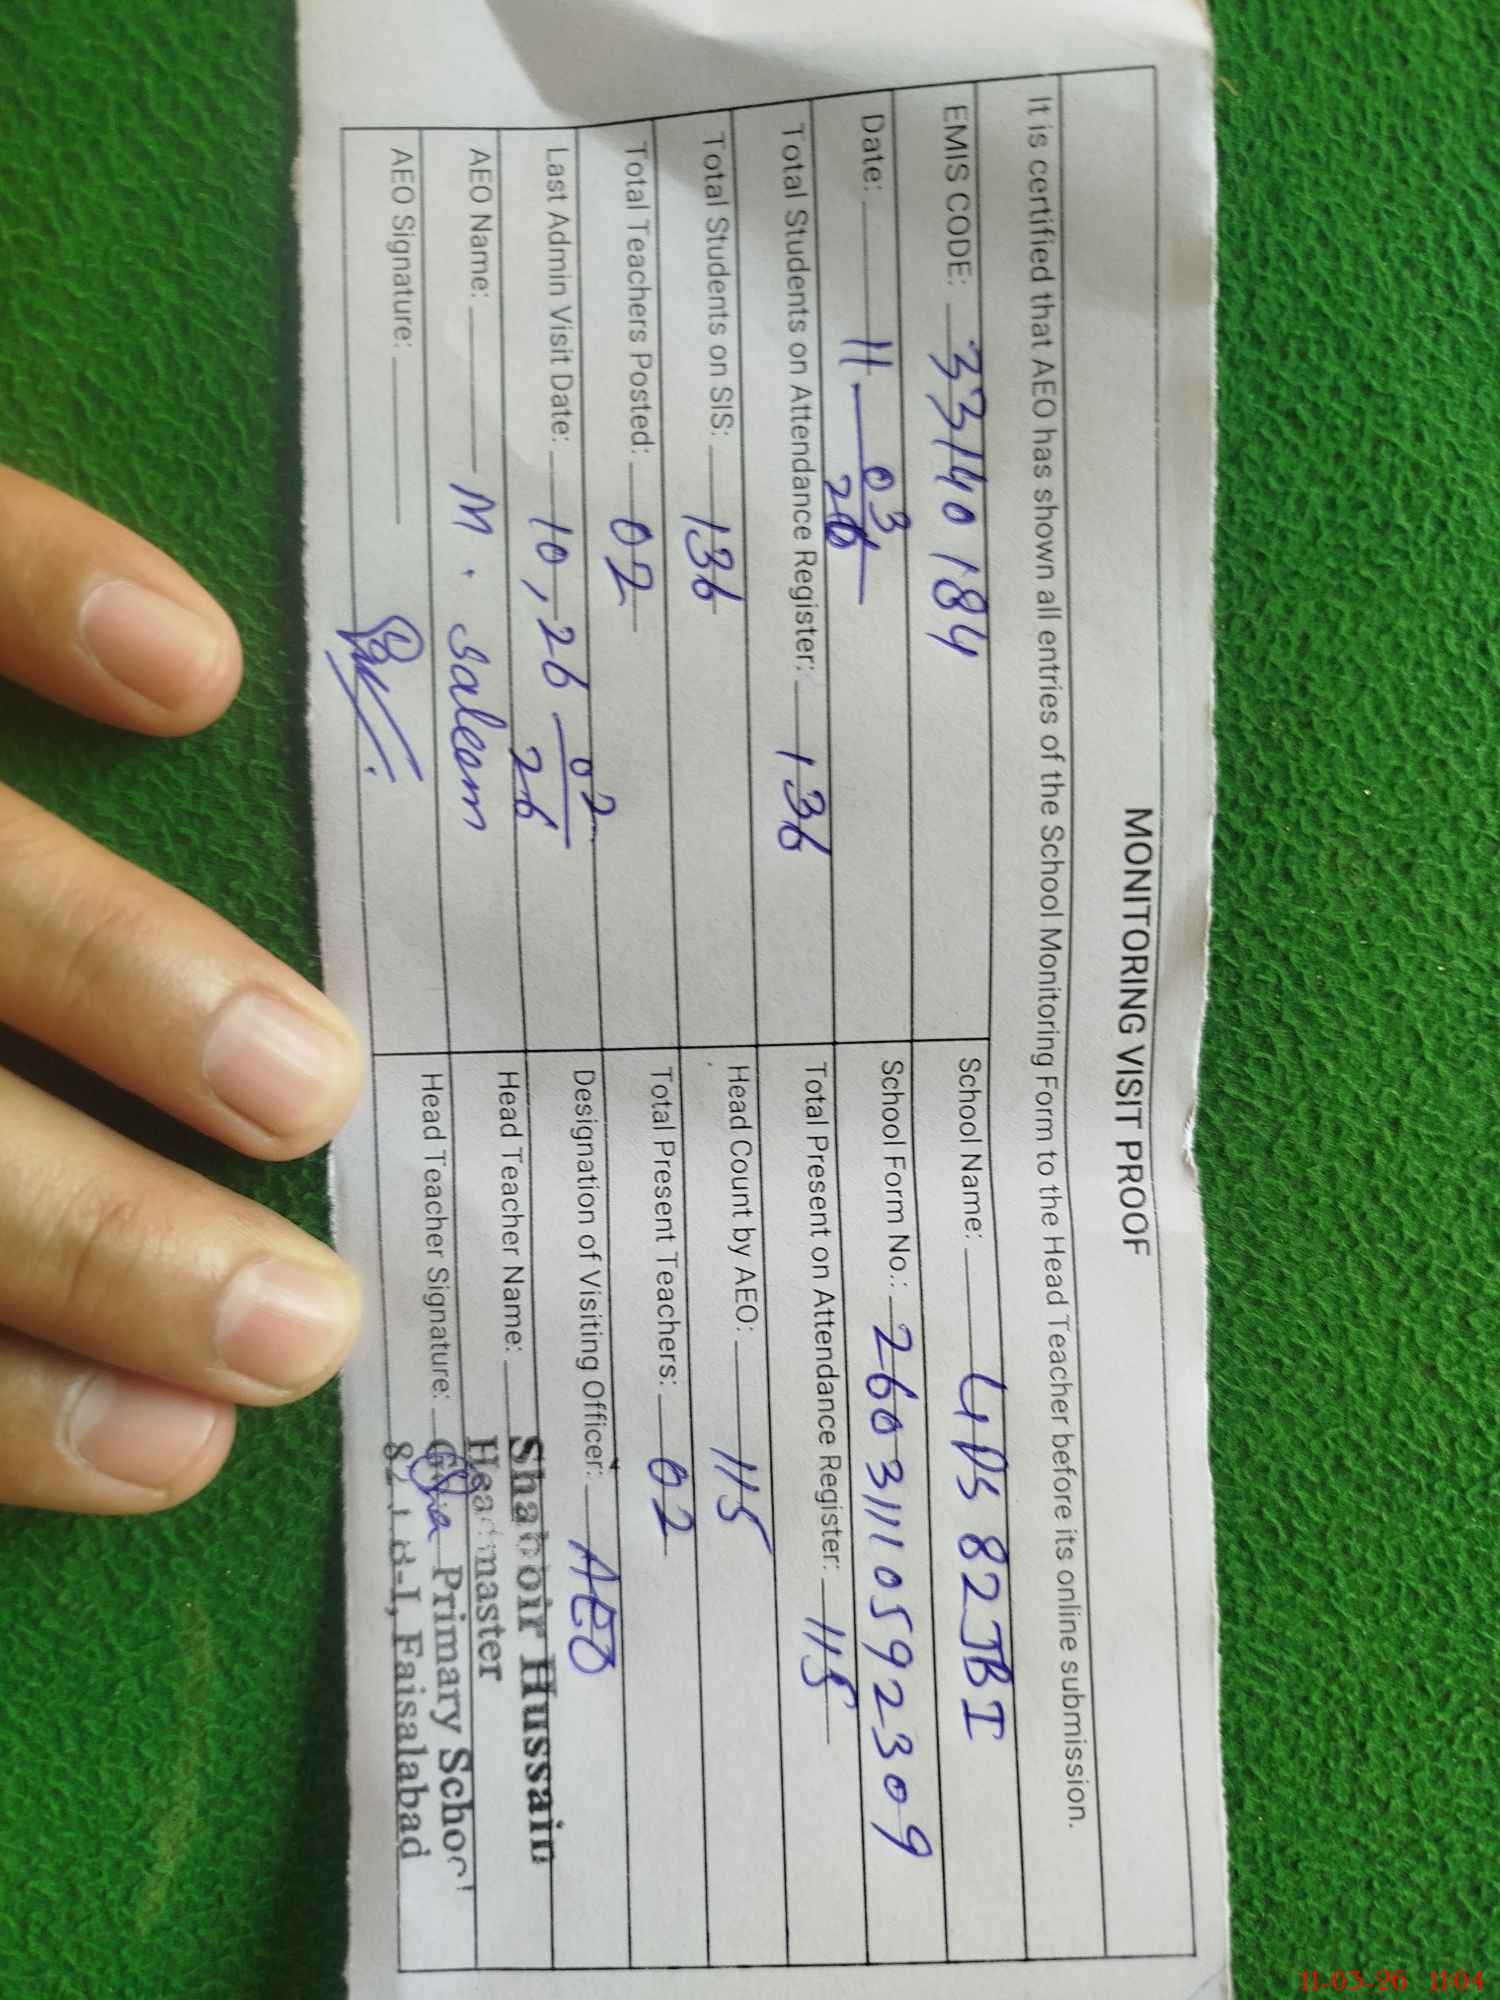 MONITORING VISIT PROOF
It is certified that AEO has shown all entries of the School Monitoring Form to the Head Teacher before its online submission.
EMIS CODE: 33140184 School Name: GPS 82JBI
Date: 11-03/26 School Form No.: 26031110592309
Total Students on Attendance Register: 136 Total Present on Attendance Register: 115
Total Students on SIS: 136 Head Count by AEO: 115
Total Teachers Posted: 02 Total Present Teachers: 02
Last Admin Visit Date: 10,26-02/26 Designation of Visiting Officer: AEO
AEO Name: M. Saleem Head Teacher Name: Shabbir Hussain
Headmaster
AEO Signature: Head Teacher Signature: Primary School
82 J.B-I, Faisalabad
11-03-26 11:04